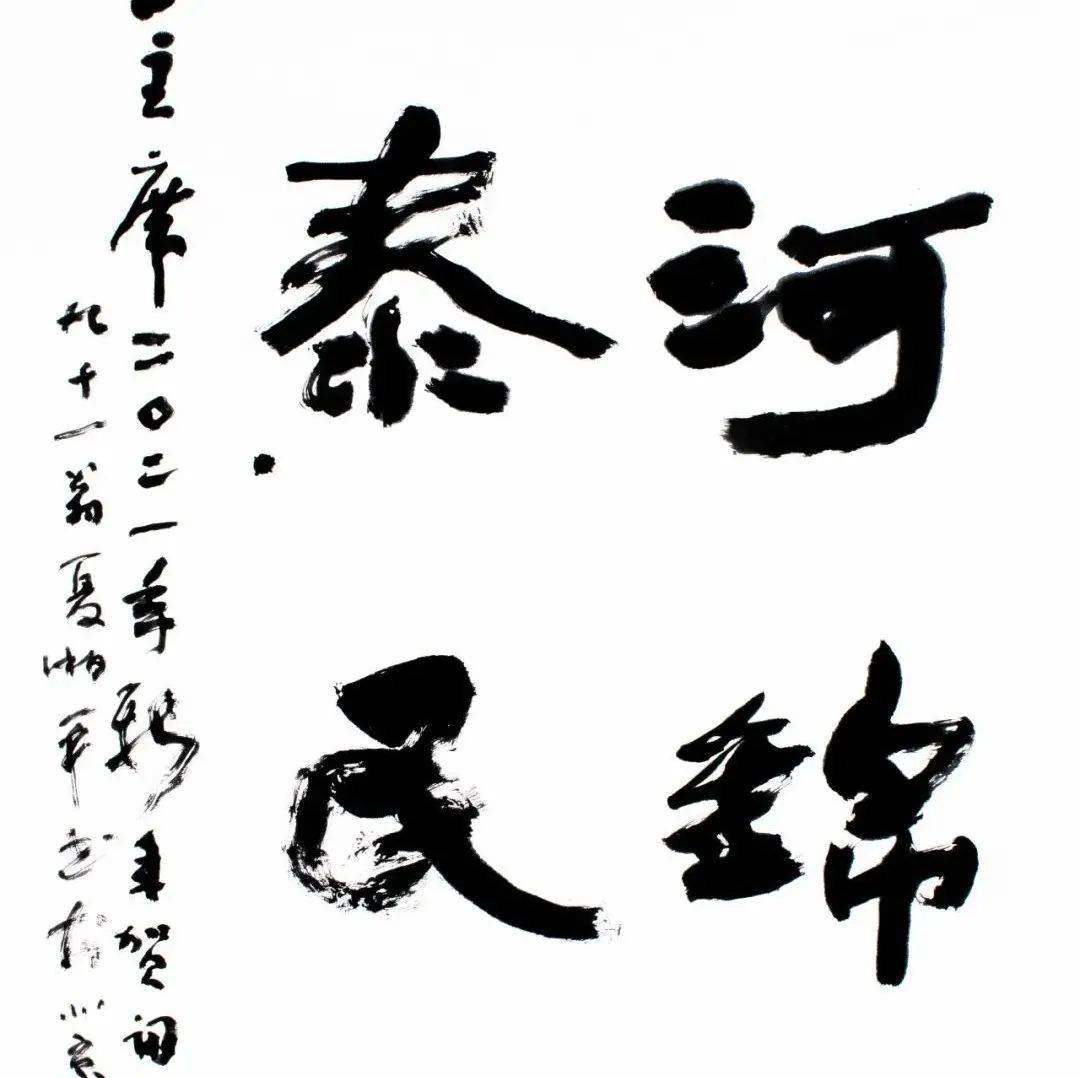 河錦
泰民
主席二〇二一年新年贺词
九十一翁夏湘平书於北京